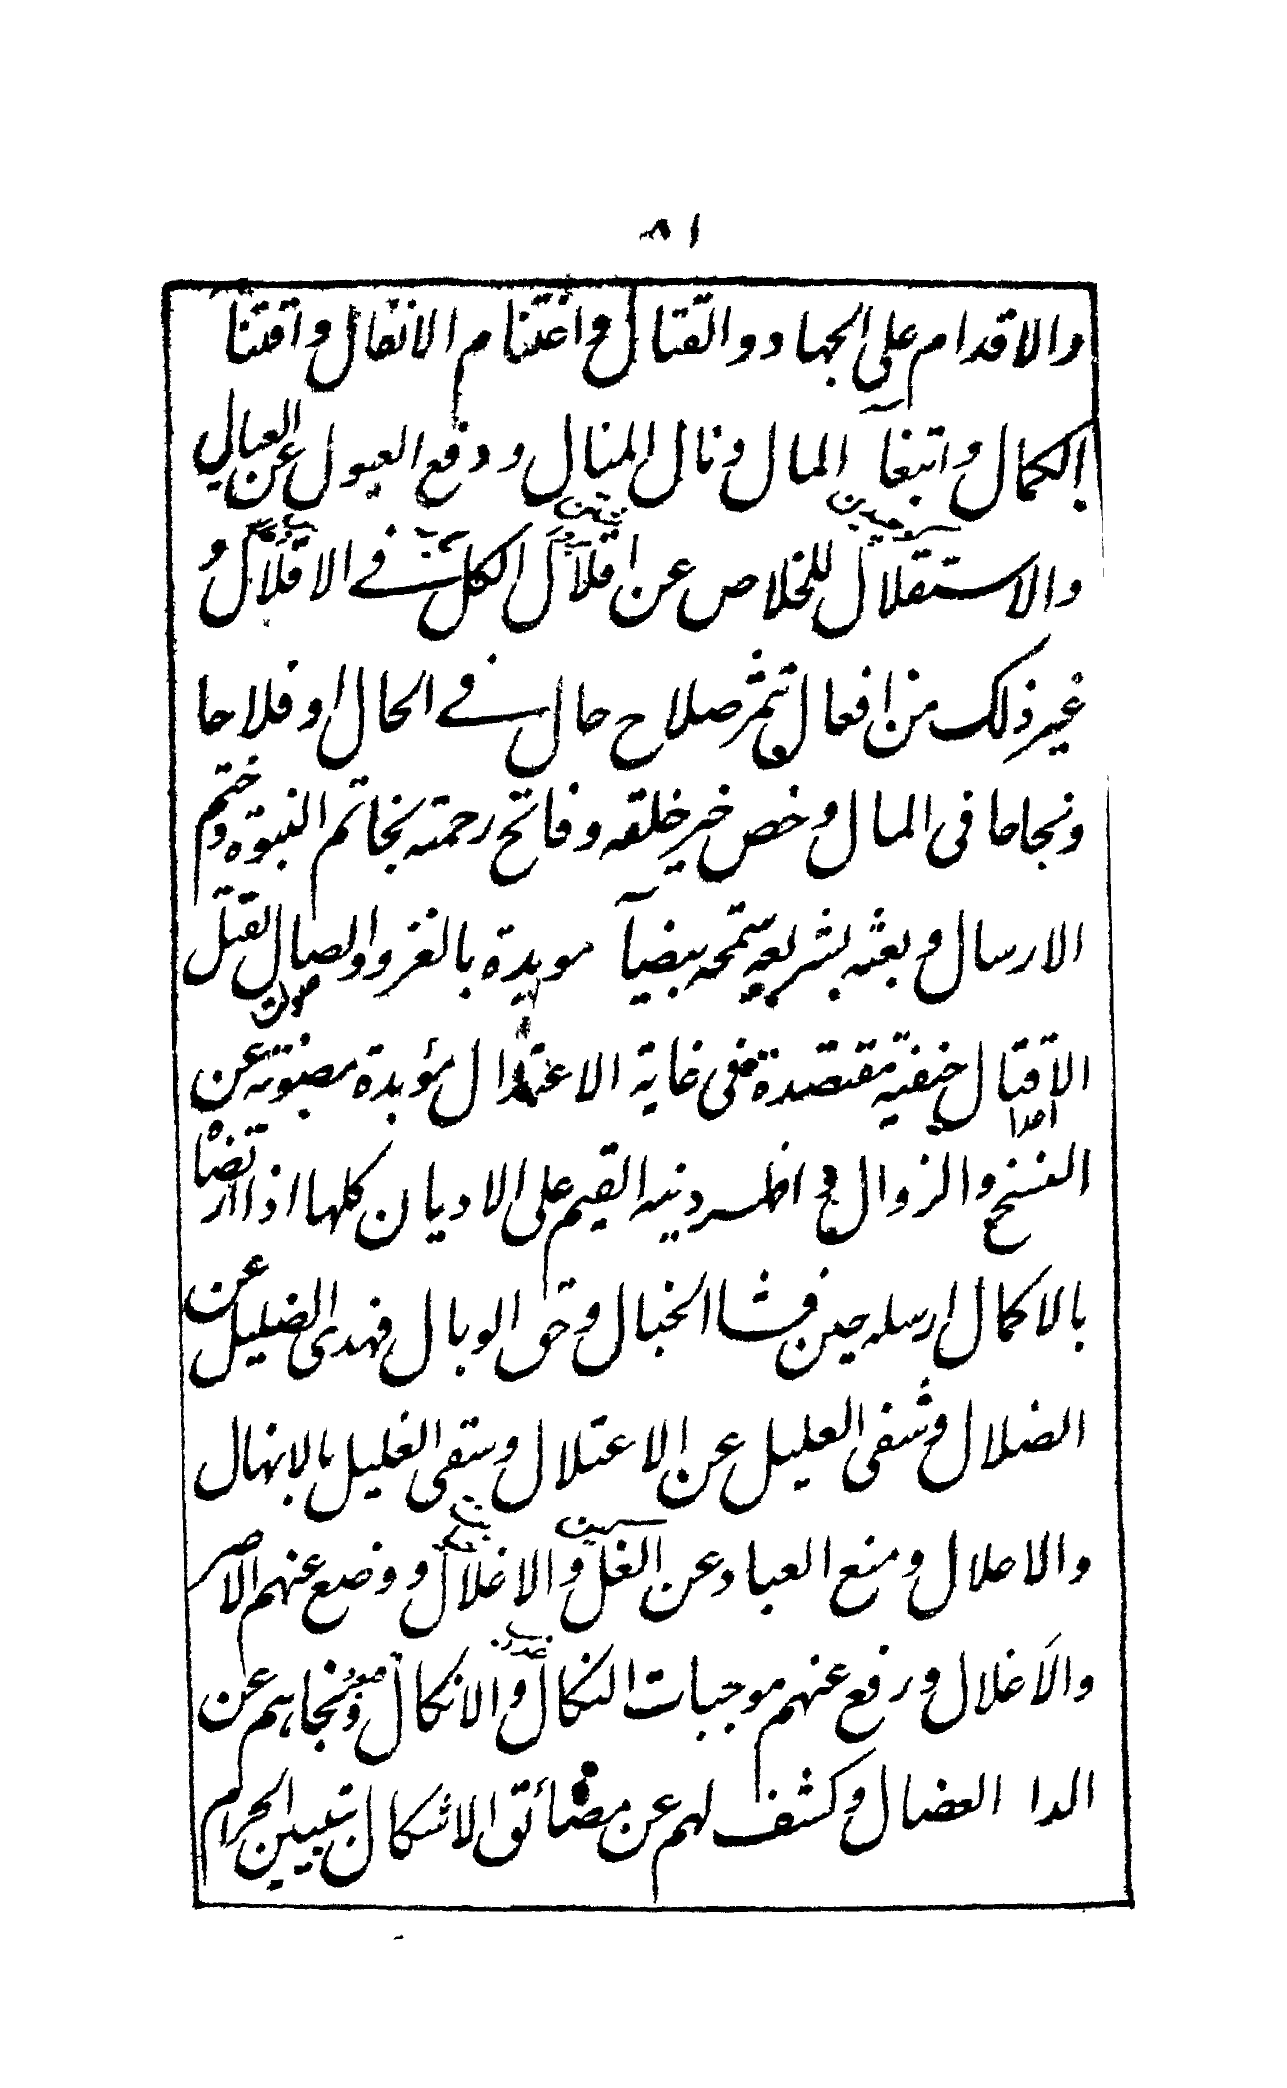 ٨١
والاقدام على الجهاد والقتال واغتنام الانفال واقتنا
الكمال وابتغآ المال ونال المنال ودفع العيول عن العيال
والاستقلال للخلاص عن اقلال الكل في الاقلال و
غير ذلك من افعال تثمر صلاح حال في الحال او فلاحا
ونجاحا في المال وخص خير خلقه وفاتح رحمته بخاتم النبوة وختم
الارسال وبعثه بشريعة سمحة بيضآ مويدة بالغزو والصال لقتل
الاقتال حنفية مقتصدة في غاية الاعتدال مؤبدة مصنوته عن
الفسخ والزوال اظهر دينه القيم على الاديان كلها اذا ارتضا
بالاكمال ارسله حين فشا الخبال وحق الوبال فهدى الضليل عن
الضلال وشفى العليل عن الاعتلال وسقى الغليل بالانهال
والاعلال ومنع العباد عن الغل والاغلال ووضع عنهم الاصر
والاغلال ورفع عنهم موجبات النكال والانكال ونجاهم عن
الدا العضال وكشف لهم عن مضائق الاشكال بتبيين الحرام